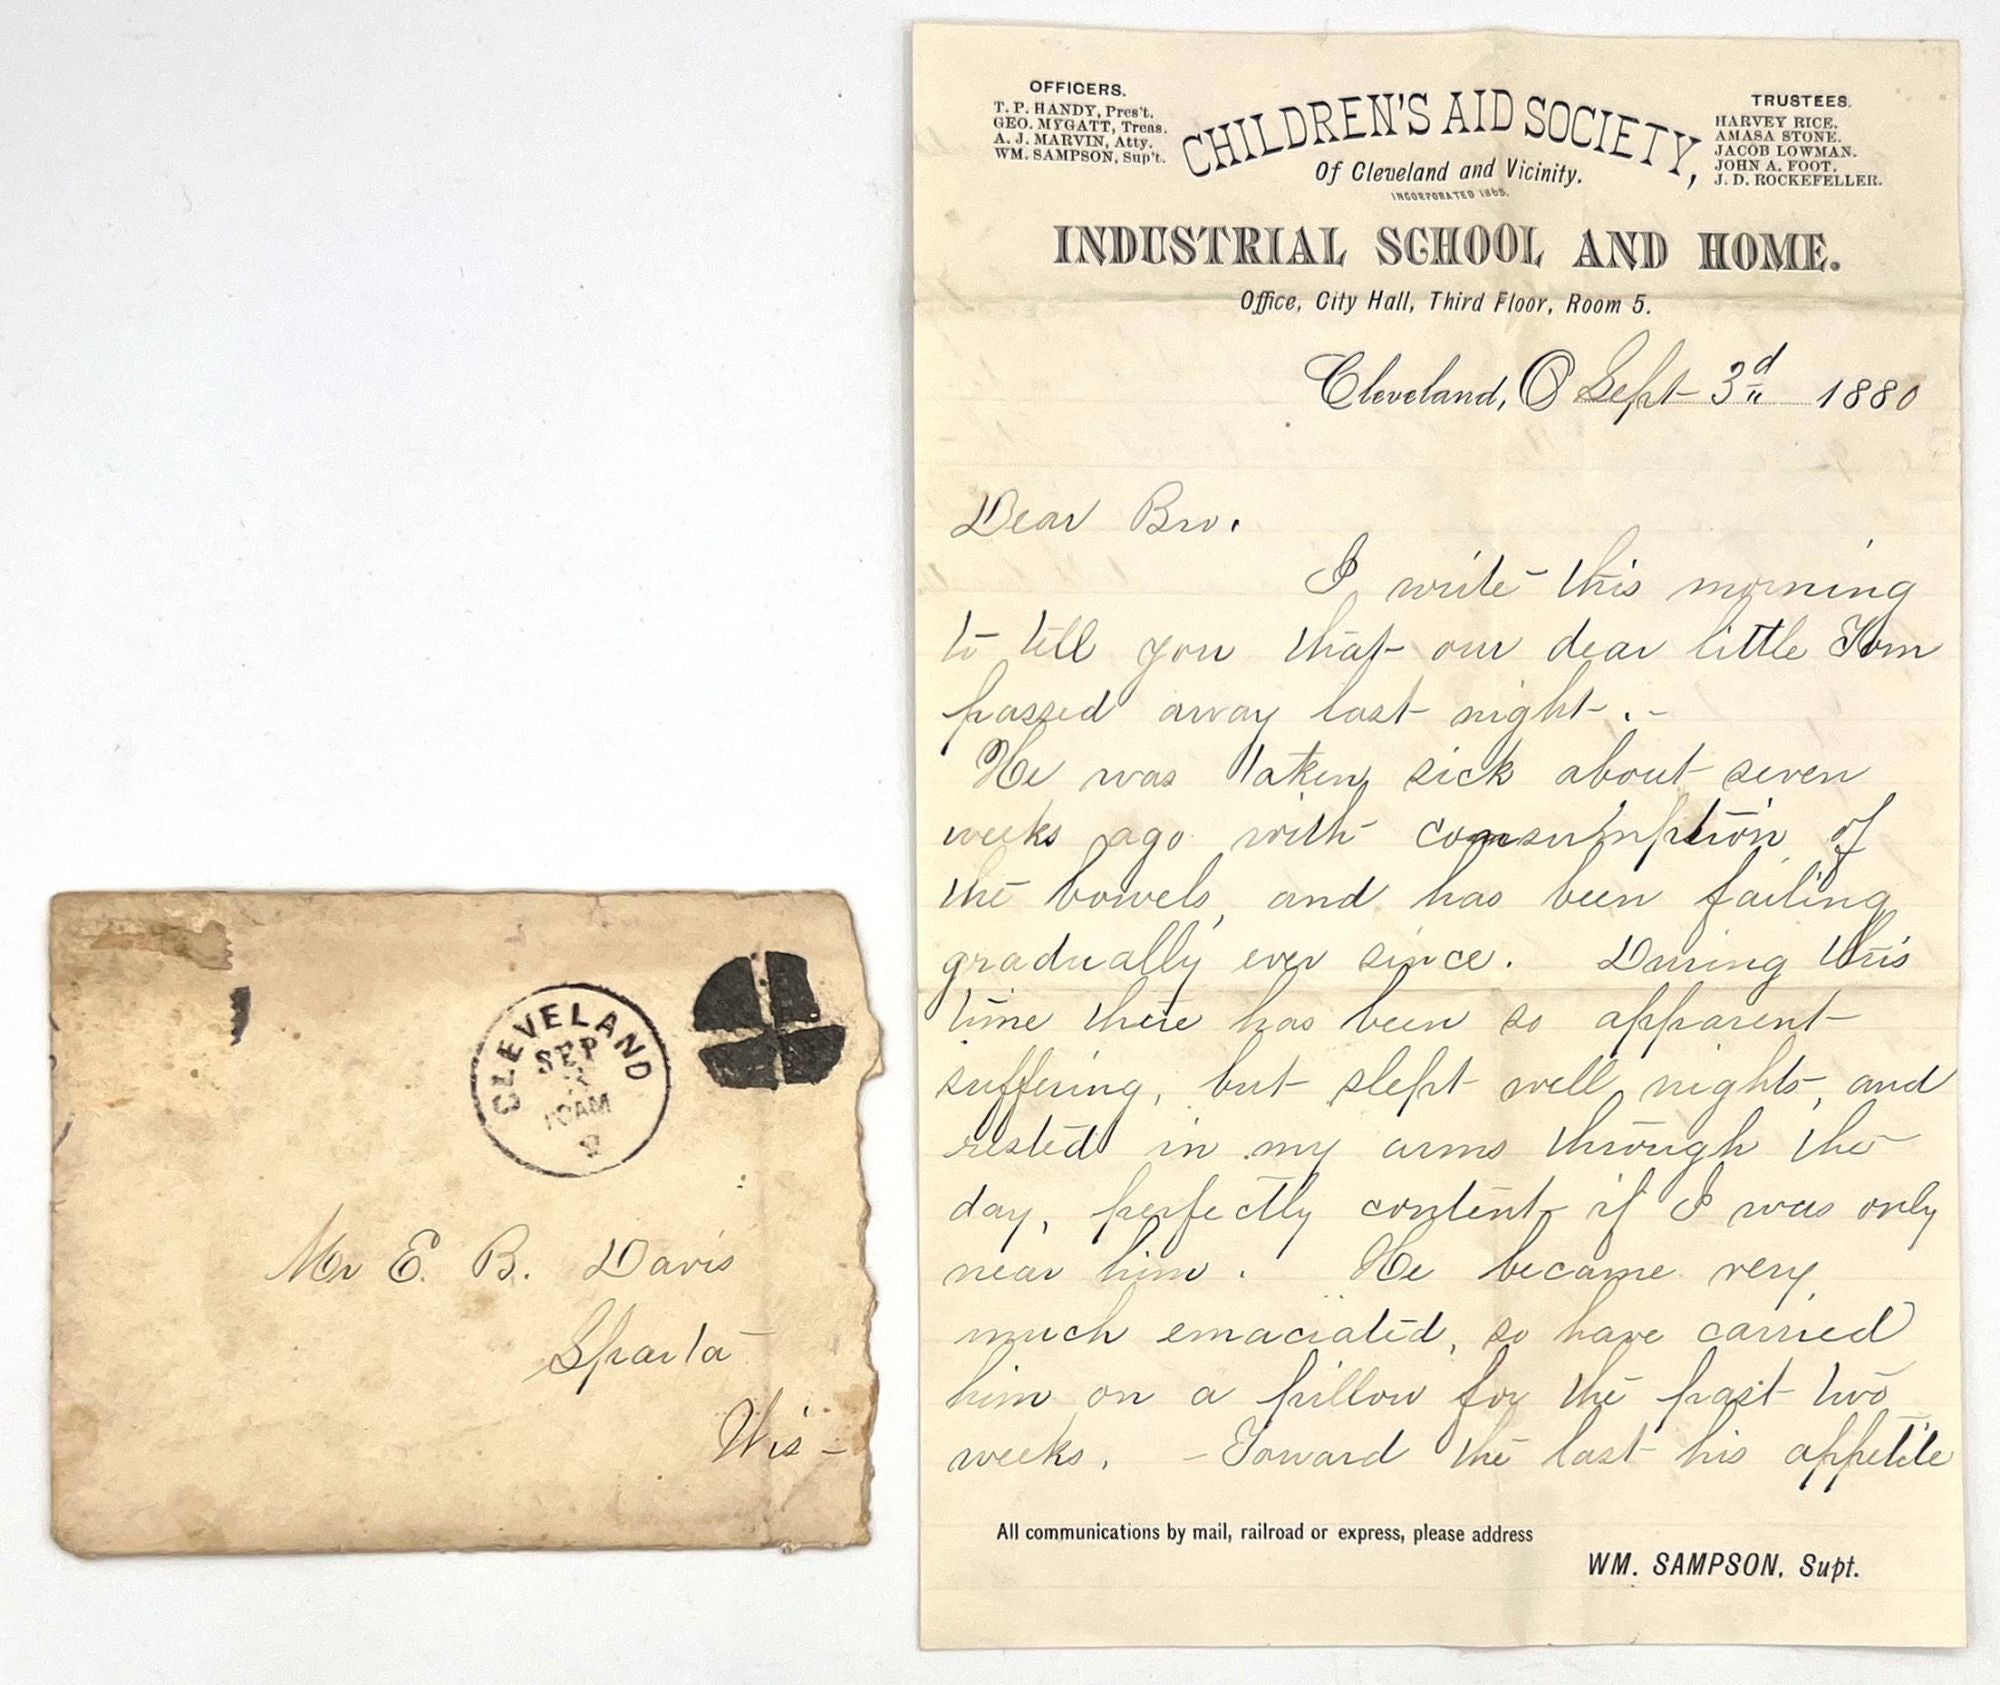 CLEVELAND
SEP
3
10AM
Mr E. B. Davis
Sparta
Wis -
OFFICERS.
T. P. HANDY, Pres't.
GEO. MYGATT, Treas.
A. J. MARVIN, Atty.
WM. SAMPSON, Sup't.
CHILDREN'S AID SOCIETY,
Of Cleveland and Vicinity.
INCORPORATED 1865.
TRUSTEES.
HARVEY RICE.
AMASA STONE.
JACOB LOWMAN.
JOHN A. FOOT.
J. D. ROCKEFELLER.
INDUSTRIAL SCHOOL AND HOME.
Office, City Hall, Third Floor, Room 5.
Cleveland, O Sept 3d 1880
Dear Bro.
I write this morning
to tell you that our dear little Tom
passed away last night. -
He was taken sick about seven
weeks ago with consumption of
the bowels, and has been failing
gradually ever since. During this
time there has been so apparent
suffering, but slept well nights, and
rested in my arms through the
day, perfectly content if I was only
near him. He became very
much emaciated, so have carried
him on a pillow for the past two
weeks. - Toward the last his appetite
All communications by mail, railroad or express, please address
WM. SAMPSON, Supt.